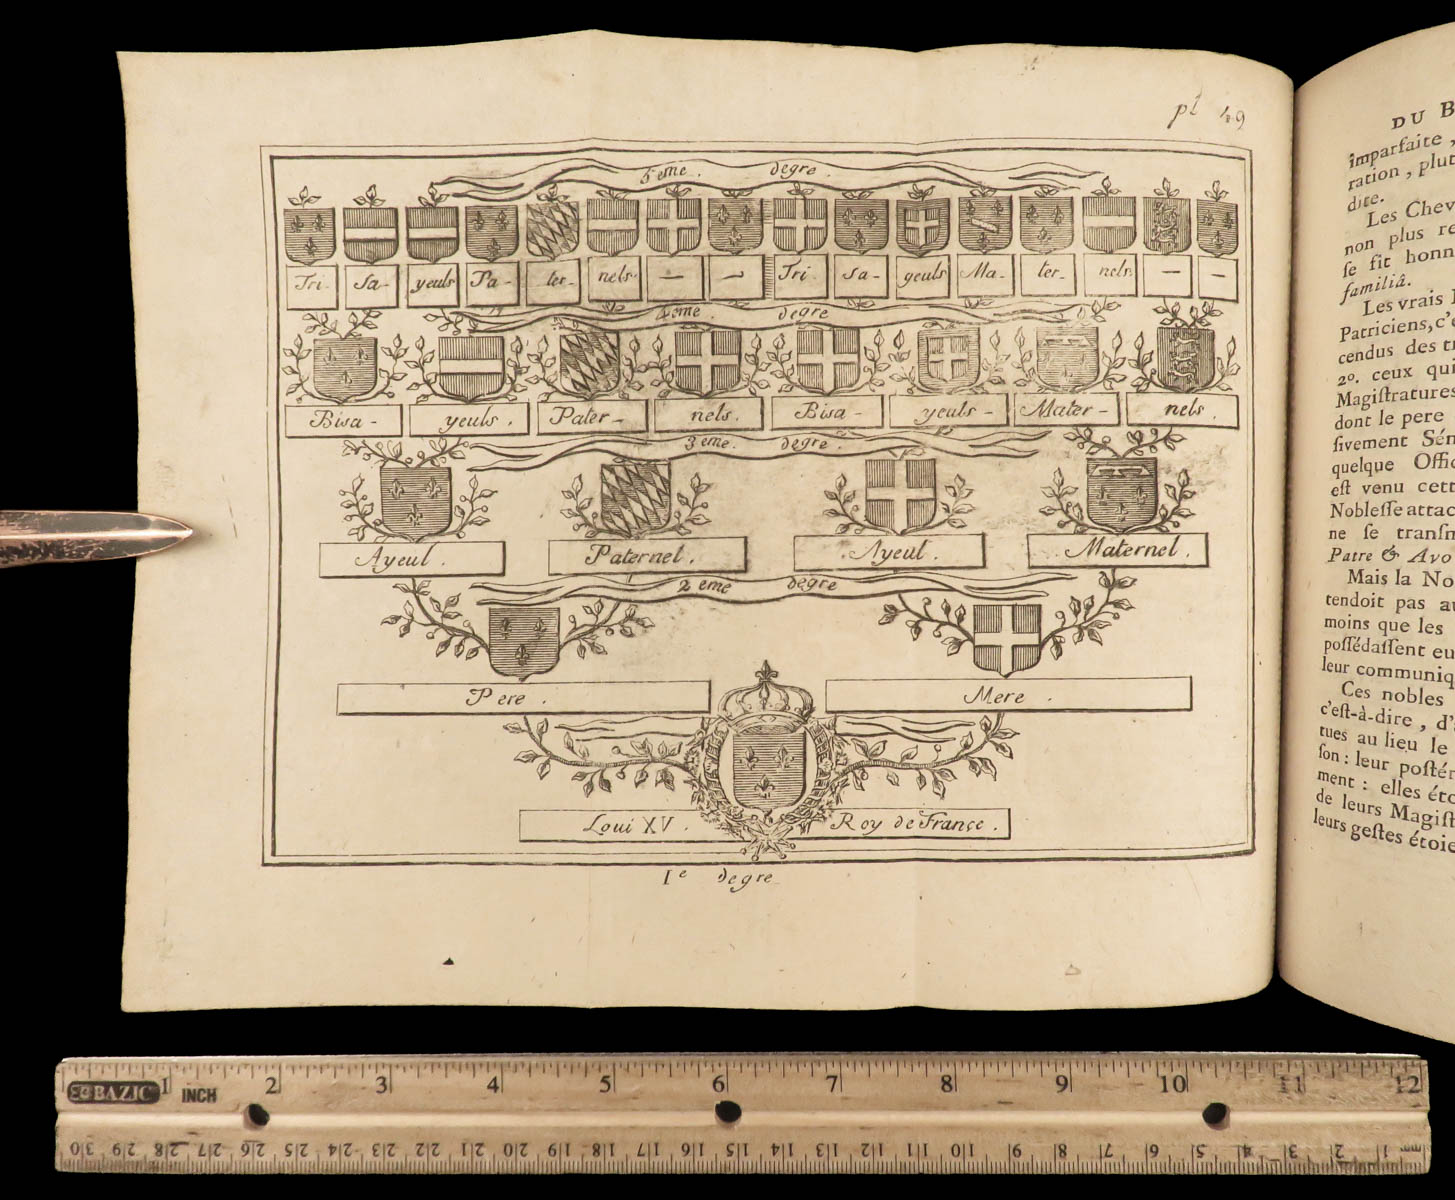 pl 49
5eme. degre.
Tri- sa- yeuls Pa- ter- nels — — Tri- sa- yeuls Ma- ter- nels — —
4eme. degre
Bisa- yeuls. Pater- nels. Bisa- yeuls- Mater- nels.
3eme. degre.
Ayeul. Paternel. Ayeul. Maternel.
2eme degre
Pere. Mere.
Loui XV. Roy de France.
Ie degre
DU B
imparfaite,
ration, plut
dite.
Les Chev
non plus re
se fit honn
familiâ.
Les vrais
Patriciens, c'e
cendus des
2o. ceux qui
Magistratures
dont le pere
sivement Sén
quelque Offic
est venu cett
Noblesse attac
ne se transm
Patre & Avo
Mais la No
tendoit pas au
moins que les
possédassent eu
leur communiq
Ces nobles
c'est-à-dire, d'
tues au lieu le
son: leur postér
ment: elles éto
de leurs Magist
leurs gestes étoie
BAZIC 1 INCH 2 3 4 5 6 7 8 9 10 11 12
30 29 28 27 26 25 24 23 22 21 20 19 18 17 16 15 14 13 12 11 10 9 8 7 6 5 4 3 2 1 mm